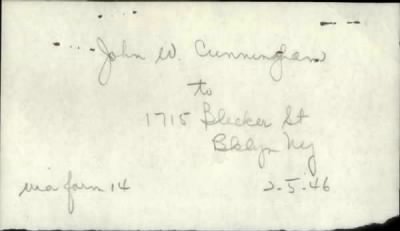 John W. Cunningham
to
1715 Blecker St
Bklyn Ny
via form 14 2-5-46